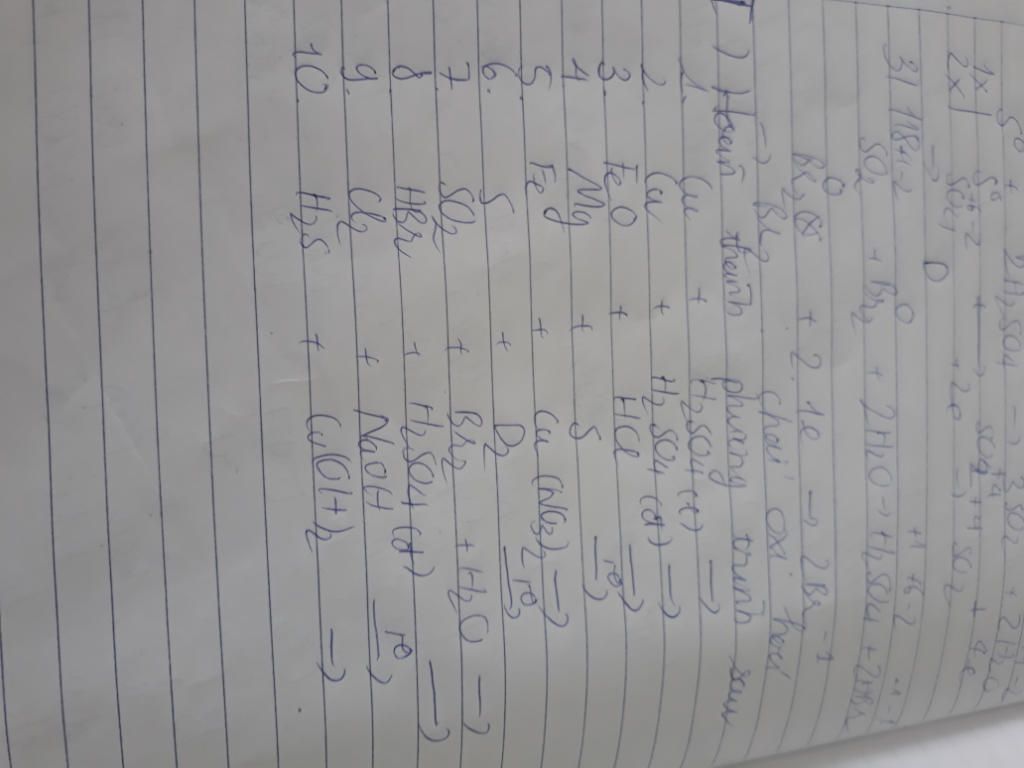 S⁰ + 2H₂SO₄ → 3SO₂ + 2H₂O
1x | S⁰ → S⁺⁴ + 4e
2x | S⁺⁶ + 2e → SO₂
3/ H₂
SO₂ + Br₂ + 2H₂O → H₂SO₄ + 2HBr
Br₂⁰ + 2.1e → 2Br⁻¹
→ Br₂ chất oxi hoá
) Hoàn thành phương trình sau
1. Cu + H₂SO₄(l) →
2. Cu + H₂SO₄(đ) →
3. FeO + HCl →
4 Mg + S t⁰→
5. Fe + Cu(NO₃)₂ →
6. S + O₂ t⁰→
7. SO₂ + Br₂ + H₂O →
8 HBr + H₂SO₄(đ) →
9. Cl₂ + NaOH t⁰→
10. H₂S + Cu(OH)₂ →